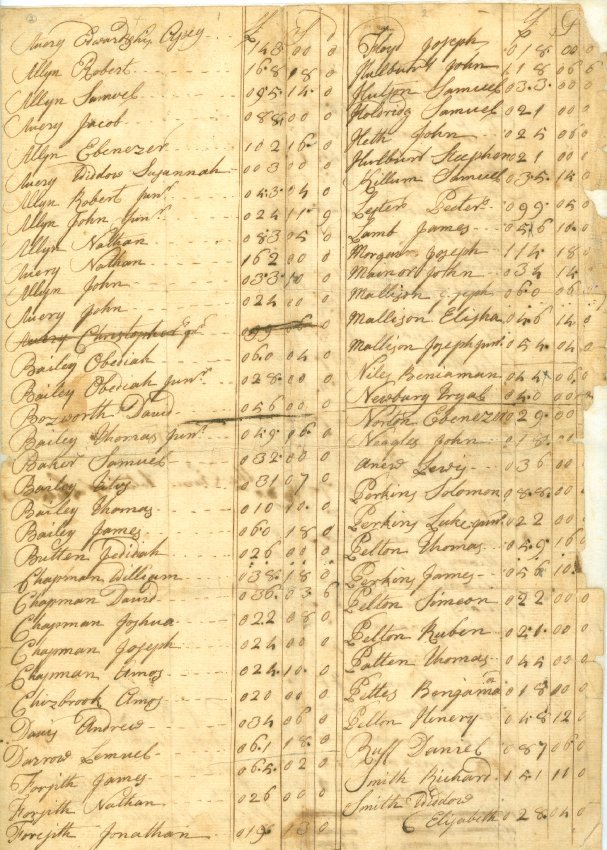 £
Avery Edwardship Esqr 148 00 0
Allyn Robert 168 18 0
Allyn Samuel 095 14 0
Avery Jacob 088 00 0
Allyn Ebenezer 102 16 0
Avery Widdow Susannah 003 00 0
Allyn Robert Junr 043 04 0
Allyn John Junr 024 11 9
Allyn Nathan 083 05 0
Avery Nathan 162 00 0
Allyn John 033 10 0
Avery John 024 00 0
Avery Christopher
Bailey Obediah 060 04 0
Bailey Obediah Junr 028 00 0
Bozworth David 056 00 0
Bailey Thomas Junr 049 06 0
Baker Samuel 032 00 0
Bailey 031 07 0
Bailey Thomas 010 10 0
Bailey James 060 18 0
Britten Jedidah 026 00 0
Chapman William 038 18 0
Chapman David 036 03 6
Chapman Joshua 022 08 0
Chapman Joseph 024 00 0
Chapman Amos 024 10 0
Chizbrook Amos 020 00 0
Davis Andrew 034 06 0
Darrow Lemuel 061 18 0
Forsith James 065 02 0
Forsith Nathan 026 00 0
Forsith Jonathan 019 13 0
£
Floyd Joseph 018 00 0
Hulburt John 118 06 6
Hudson Samuel 033 00 0
Holdridg Samuel 021 00 0
Heth John 025 06 0
Hurlburt Stephen 021 00 0
Killum Samuel 035 14 0
Lester Peter 099 05 0
Lamb James 056 10 0
Morgan Joseph 114 18 0
Maenor John 034 14
Mallison Joseph 060 06
Mallison Elisha 046 14 0
Mallison Joseph Junr 054 04 0
Niles Beniaman 044 06 0
Newbury 040 00
Norton Ebenezer 029 00
Neagles John 018 0
Lewis 036 00
Perkins Solomon 088 00 0
Perkins Luke Junr 022 00 0
Pelton Thomas 059 16 0
Perkins James 056 10
Pelton Simeon 022 00 0
Pelton Ruben 021 00 0
Patten Thomas 044 00 0
Pettes Bengama 018 00 0
Pelton Henery 048 12 0
Raff Daniel 087 06 0
Smith Richard 151 11 0
Smith Widdow
Elizabeth 028 04 0